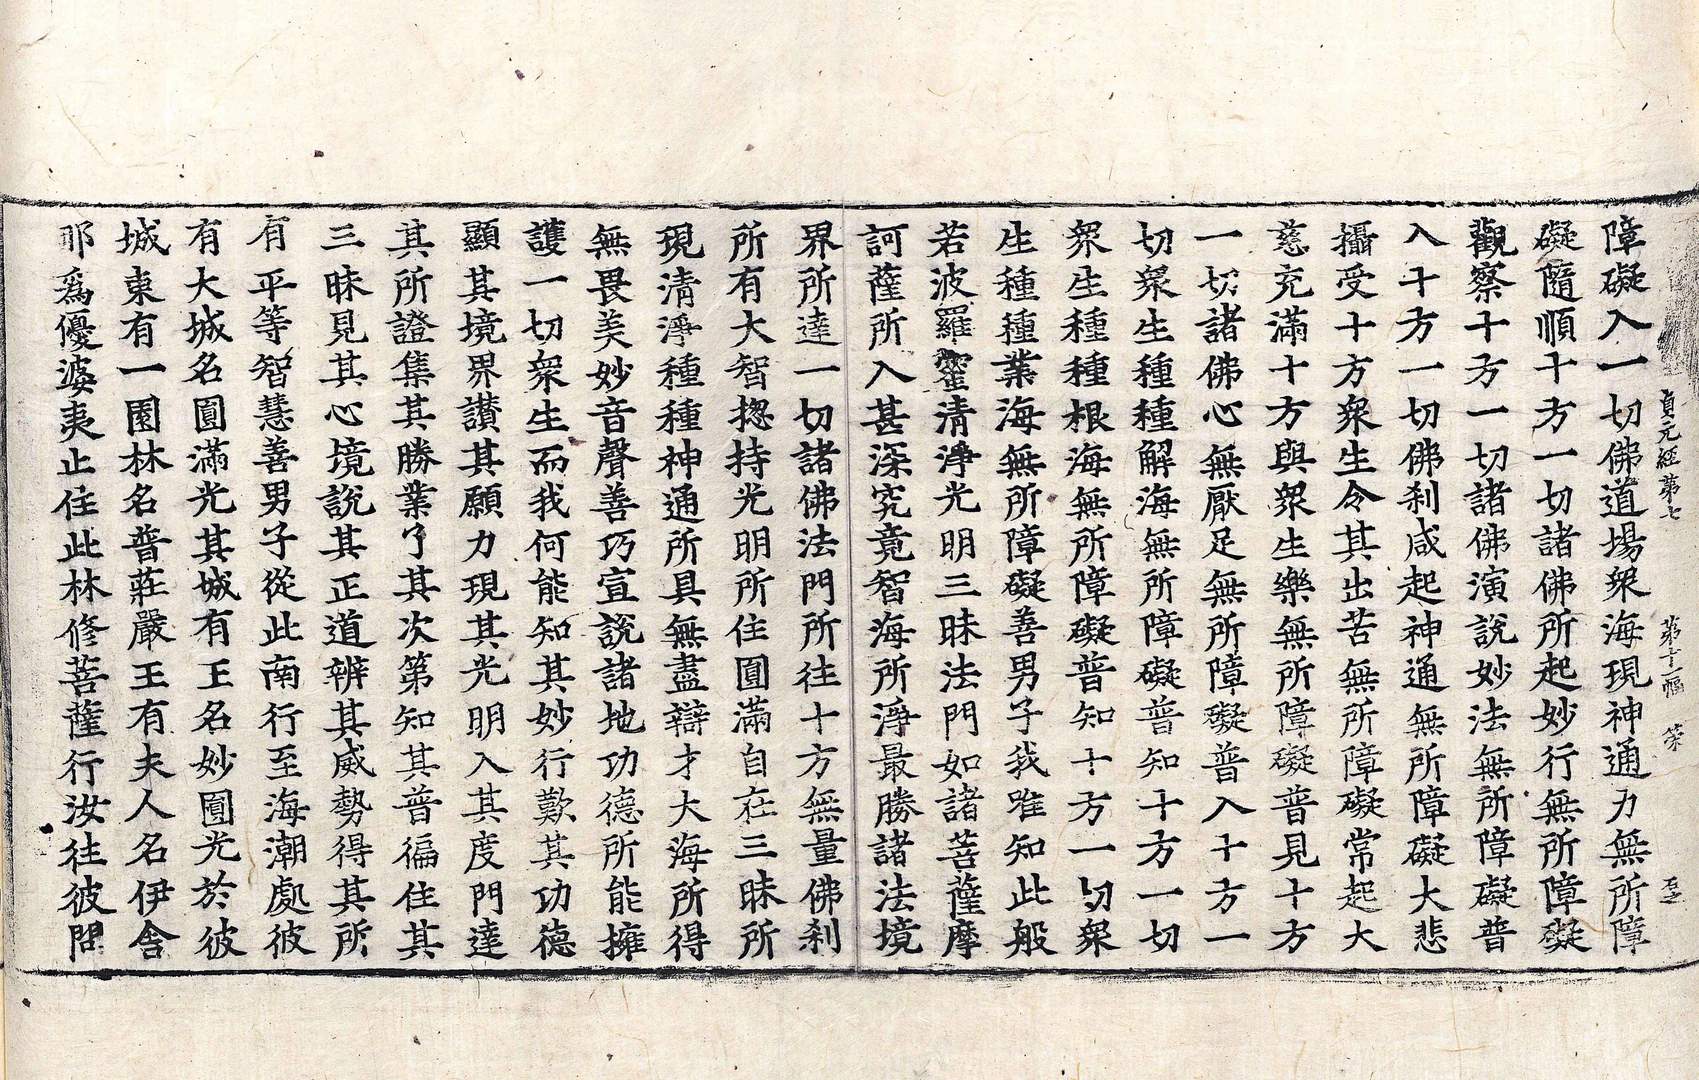 貞元經第七 第十二幅 策 石之
障礙入一切佛道場衆海現神通力無所障
礙隨順十方一切諸佛所起妙行無所障礙
觀察十方一切諸佛演說妙法無所障礙普
入十方一切佛刹咸起神通無所障礙大悲
攝受十方衆生令其出苦無所障礙常起大
慈充滿十方與衆生樂無所障礙普見十方
一切諸佛心無厭足無所障礙普入十方一
切衆生種種解海無所障礙普知十方一切
衆生種種根海無所障礙普知十方一切衆
生種種業海無所障礙善男子我唯知此般
若波羅蜜清淨光明三昧法門如諸菩薩摩
訶薩所入甚深究竟智海所淨最勝諸法境
界所達一切諸佛法門所往十方無量佛刹
所有大智揔持光明所住圓滿自在三昧所
現清淨種種神通所具無盡辯才大海所得
無畏美妙音聲善巧宣說諸地功德所能擁
護一切衆生而我何能知其妙行歎其功德
顯其境界讃其願力現其光明入其度門達
其所證集其勝業了其次第知其普徧住其
三昧見其心境說其正道辨其威勢得其所
有平等智慧善男子從此南行至海潮處彼
有大城名圓滿光其城有王名妙圓光於彼
城東有一園林名普莊嚴王有夫人名伊舍
那爲優婆夷止住此林修菩薩行汝往彼問